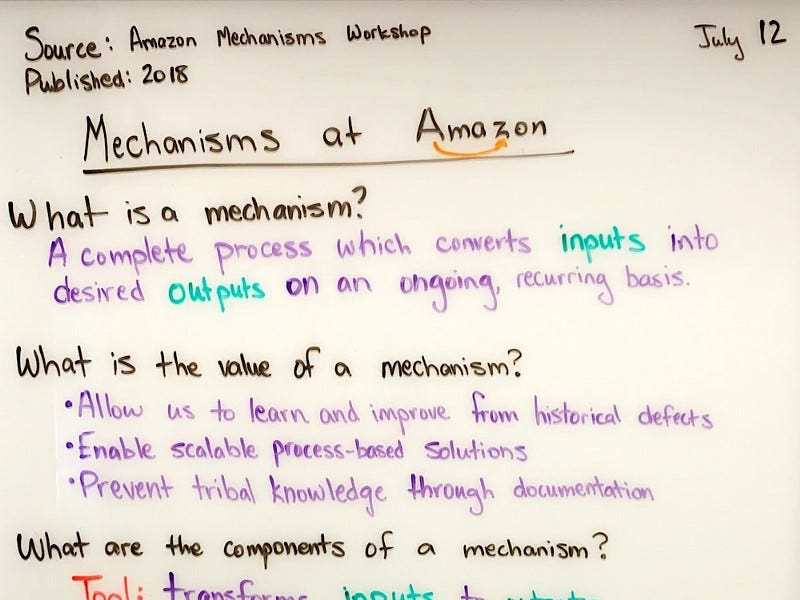 Source: Amazon Mechanisms Workshop
July 12
Published: 2018
Mechanisms at Amazon
What is a mechanism?
A complete process which converts inputs into
desired outputs on an ongoing, recurring basis.
What is the value of a mechanism?
•Allow us to learn and improve from historical defects
•Enable scalable process-based solutions
•Prevent tribal knowledge through documentation
What are the components of a mechanism?
Tool: transforms inputs to outputs